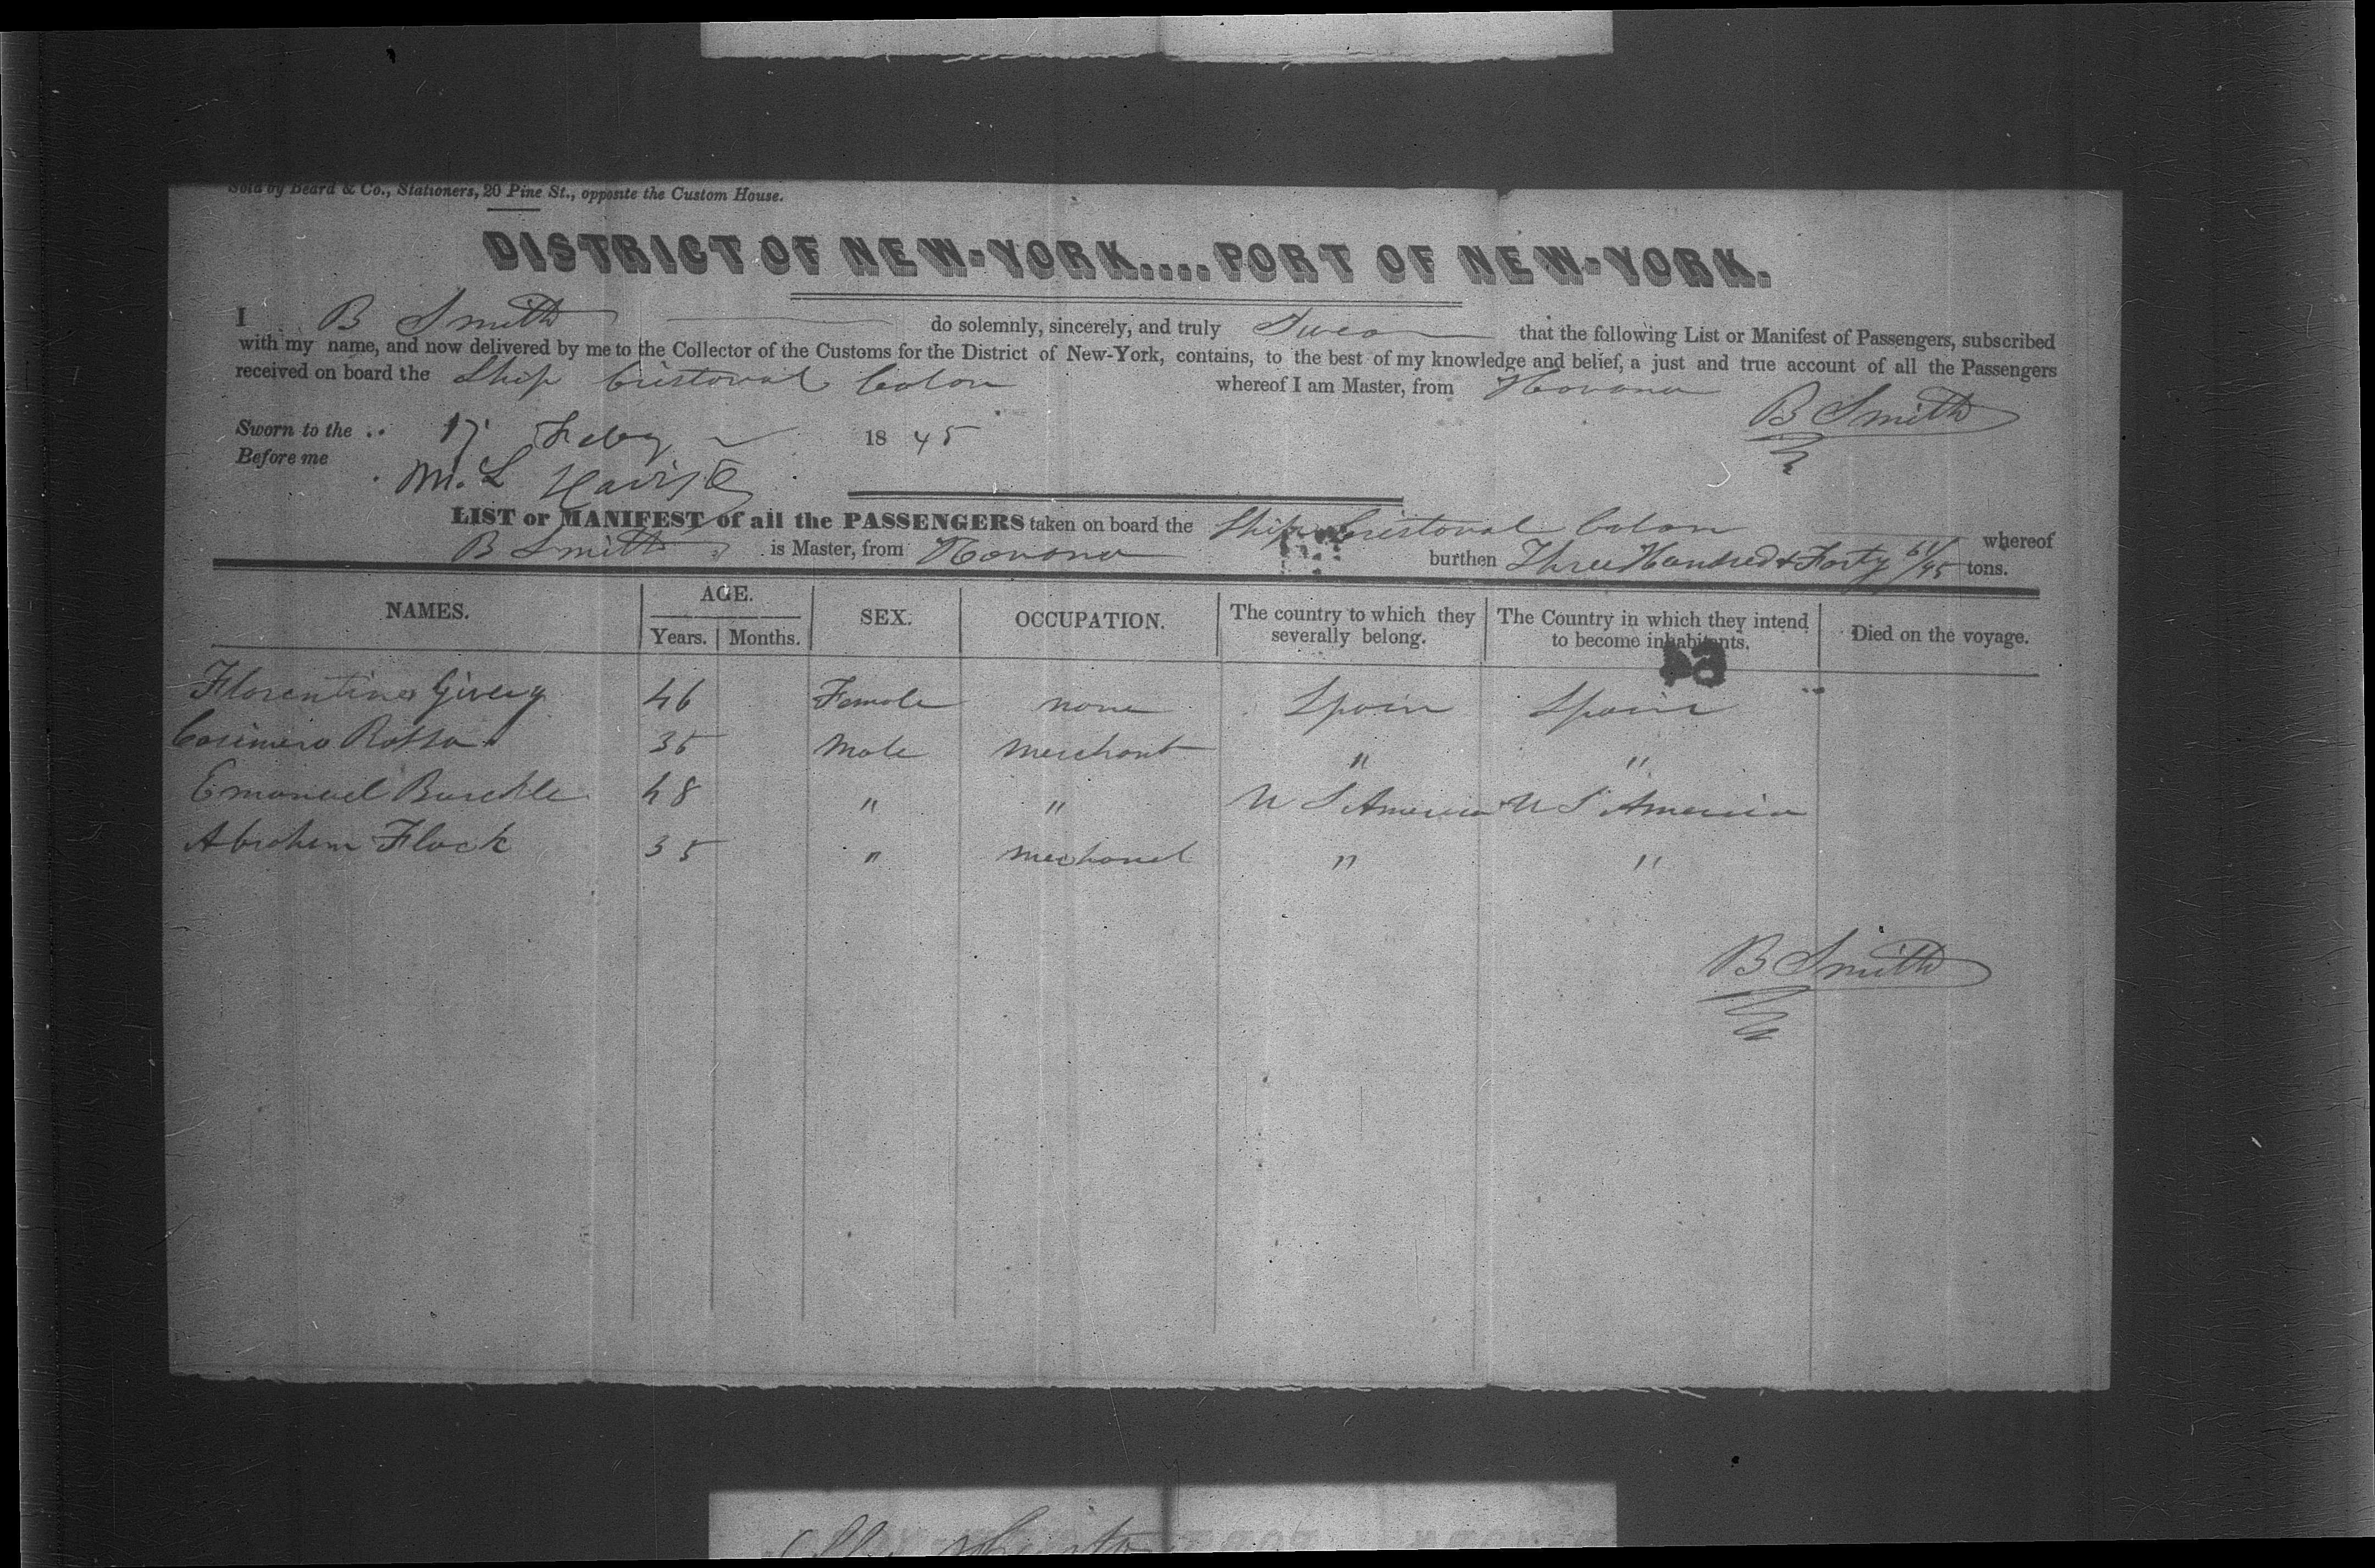 Sold by Beard & Co., Stationers, 20 Pine St., opposite the Custom House.
DISTRICT OF NEW-YORK....PORT OF NEW-YORK.
I B Smith do solemnly, sincerely, and truly Swear that the following List or Manifest of Passengers, subscribed
with my name, and now delivered by me to the Collector of the Customs for the District of New-York, contains, to the best of my knowledge and belief, a just and true account of all the Passengers
received on board the Ship Cristoval Colon whereof I am Master, from Havana
B Smith
Sworn to the .. 17 Feby 1845
Before me M. L
LIST or MANIFEST of all the PASSENGERS taken on board the Ship Cristoval Colon whereof
B Smith is Master, from Havana burthen Three Hundred & Forty tons.
NAMES. AGE. Years. Months. SEX. OCCUPATION. The country to which they severally belong. The Country in which they intend to become inhabitants. Died on the voyage.
64
Florentina 46 Female none Spain Spain
Casimero 35 Male Merchant " "
Emanuel 48 " " U S America U S America
Abrahem Flack 35 " " "
B Smith